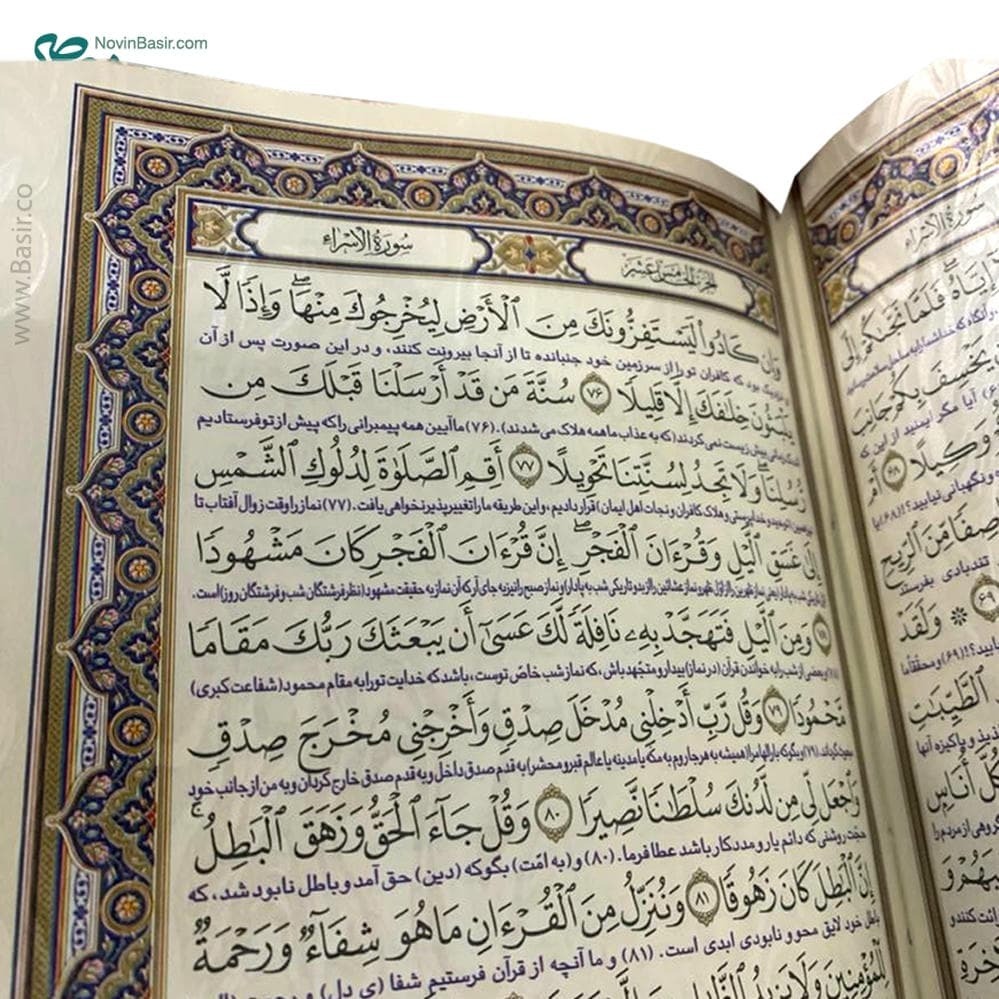 NovinBasir.com
www.Basir.co
سورة الإسراء
الجزء الخامس عشر
وَإِن كَادُوا۟ لَيَسْتَفِزُّونَكَ مِنَ ٱلْأَرْضِ لِيُخْرِجُوكَ مِنْهَا ۖ وَإِذًا لَّا
بود که کافران تو را از سرزمین خود جنبانده تا از آنجا بیرونت کنند، و در این صورت پس از آن
يَلْبَثُونَ خِلَـٰفَكَ إِلَّا قَلِيلًا ٧٦ سُنَّةَ مَن قَدْ أَرْسَلْنَا قَبْلَكَ مِن
بیش زیست نمی‌کردند (که به عذاب ما همه هلاک می‌شدند). (۷۶) ما آیین همه پیمبرانی را که پیش از تو فرستادیم
رُّسُلِنَا ۖ وَلَا تَجِدُ لِسُنَّتِنَا تَحْوِيلًا ٧٧ أَقِمِ ٱلصَّلَوٰةَ لِدُلُوكِ ٱلشَّمْسِ
و هلاک کافران و نجات اهل ایمان) قرار دادیم، و این طریقه ما را تغییرپذیر نخواهی یافت. (۷۷) نماز را وقت زوال آفتاب تا
إِلَىٰ غَسَقِ ٱلَّيْلِ وَقُرْءَانَ ٱلْفَجْرِ ۖ إِنَّ قُرْءَانَ ٱلْفَجْرِ كَانَ مَشْهُودًا
و نماز صبح را نیز به جای آر که آن نماز به حقیقت مشهود (نظر فرشتگان شب و فرشتگان روز) است.
٧٨ وَمِنَ ٱلَّيْلِ فَتَهَجَّدْ بِهِۦ نَافِلَةً لَّكَ عَسَىٰٓ أَن يَبْعَثَكَ رَبُّكَ مَقَامًا
و بعضی از شب را به خواندن قرآن (در نماز) بیدار و متهجد باش، که نماز شب خاصّ توست، باشد که خدایت تو را به مقام محمود (شفاعت کبری)
مَّحْمُودًا ٧٩ وَقُل رَّبِّ أَدْخِلْنِى مُدْخَلَ صِدْقٍ وَأَخْرِجْنِى مُخْرَجَ صِدْقٍ
(۷۹) و بگو که بارالها مرا (همیشه به هر جا روم به مکه یا مدینه یا عالم قبر و محشر) به قدم صدق داخل و به قدم صدق خارج گردان و به من از جانب خود
وَٱجْعَل لِّى مِن لَّدُنكَ سُلْطَـٰنًا نَّصِيرًا ٨٠ وَقُلْ جَآءَ ٱلْحَقُّ وَزَهَقَ ٱلْبَـٰطِلُ ۚ
حجت روشنی که دائم یار و مددکار باشد عطا فرما. (۸۰) و (به امّت) بگو که (دین) حق آمد و باطل نابود شد، که
إِنَّ ٱلْبَـٰطِلَ كَانَ زَهُوقًا ٨١ وَنُنَزِّلُ مِنَ ٱلْقُرْءَانِ مَا هُوَ شِفَآءٌ وَرَحْمَةٌ
باطل خود لایق محو و نابودی ابدی است. (۸۱) و ما آنچه از قرآن فرستیم شفا (ی دل) و رحمت
لِّلْمُؤْمِنِينَ وَلَا يَزِيدُ
سورة الإسراء
إِيَّاهُ ۖ فَلَمَّا نَجَّىٰكُمْ إِلَى
يَخْسِفَ بِكُمْ جَانِبَ
آیا مگر ایمنید از این که
وَكِيلًا ٦٨ أَمْ
و نگهبانی نیابید؟! (۶۸) یا
قَاصِفًا مِّنَ ٱلرِّيحِ
تندبادی بفرستد
٦٩ ۞ وَلَقَدْ
(۶۹) و محققاً ما
ٱلطَّيِّبَـٰتِ
لذیذ و پاکیزه آنها
كُلَّ أُنَاسٍ
گروهی از مردم را